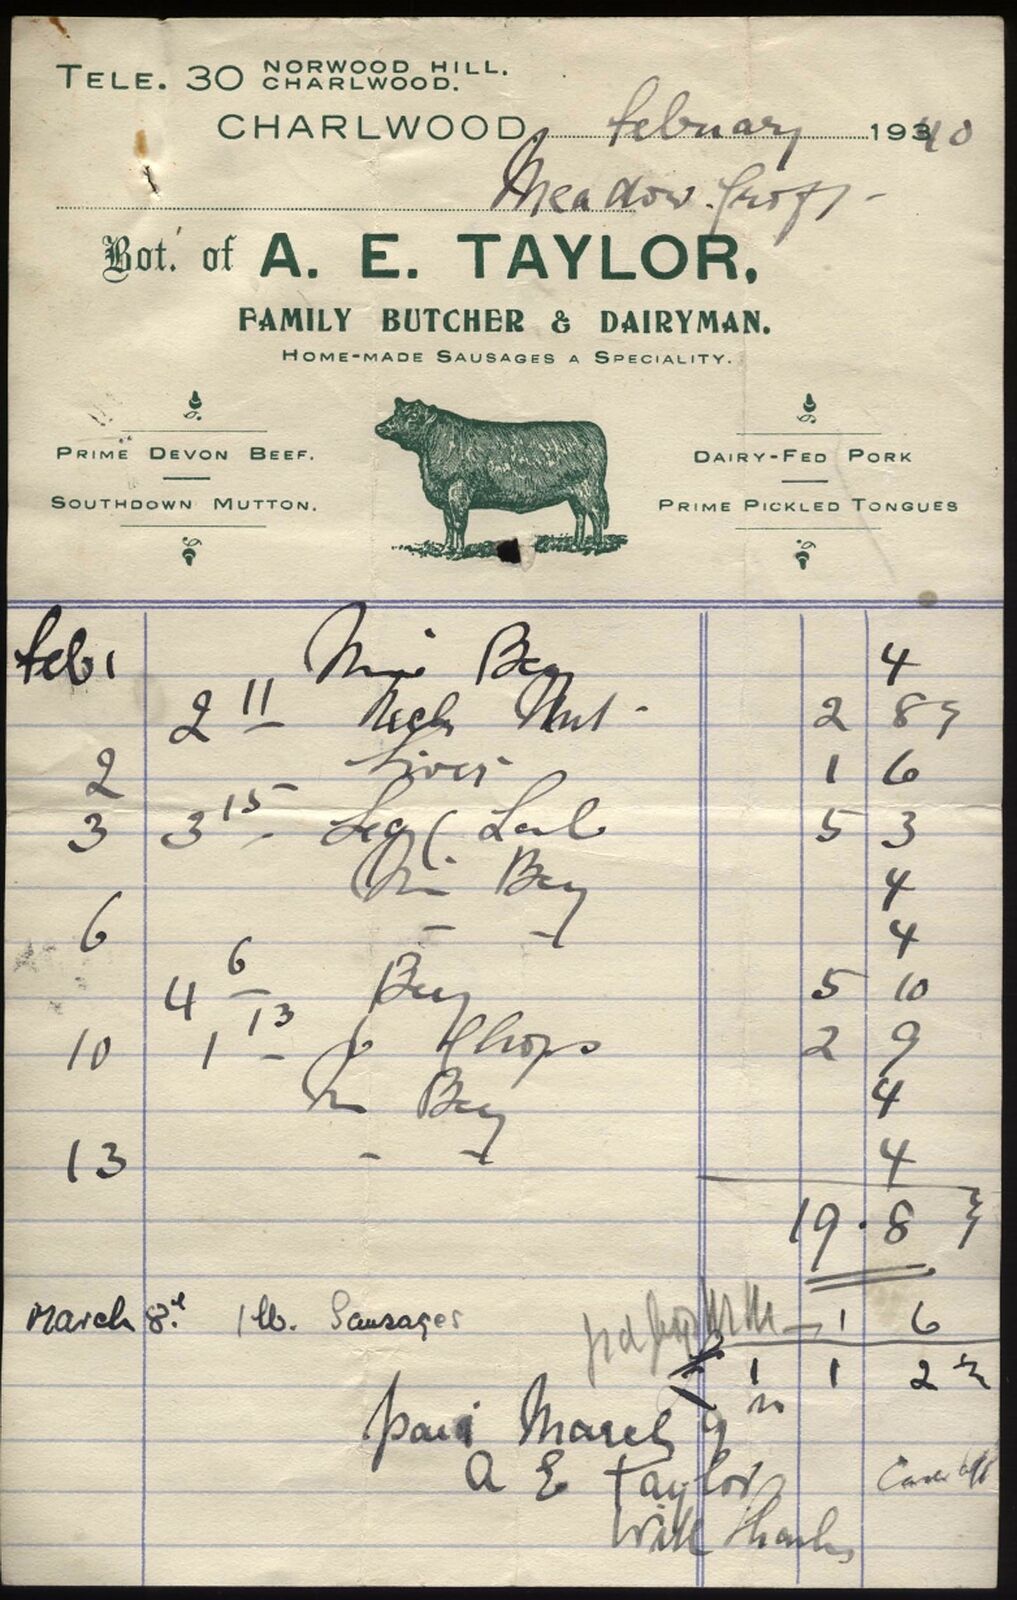 TELE. 30 NORWOOD HILL. CHARLWOOD.
CHARLWOOD, February 1940
Meadow Croft
Bot. of A. E. TAYLOR,
FAMILY BUTCHER & DAIRYMAN.
HOME-MADE SAUSAGES A SPECIALITY.
PRIME DEVON BEEF.
SOUTHDOWN MUTTON.
DAIRY-FED PORK
PRIME PICKLED TONGUES
Feb 1 4
2 11 Neck Mut 2 8½
2 Liver 1 6
3 3 15 Leg Lamb 5 3
4
6 - - 4
4 6 5 10
10 1 13 Chops 2 9
4
13 - - 4
19 . 8 ½
March 8th 1 lb. Sausages 1 6
£ 1 1 2 ½
paid March 9th
A E Taylor
With thanks